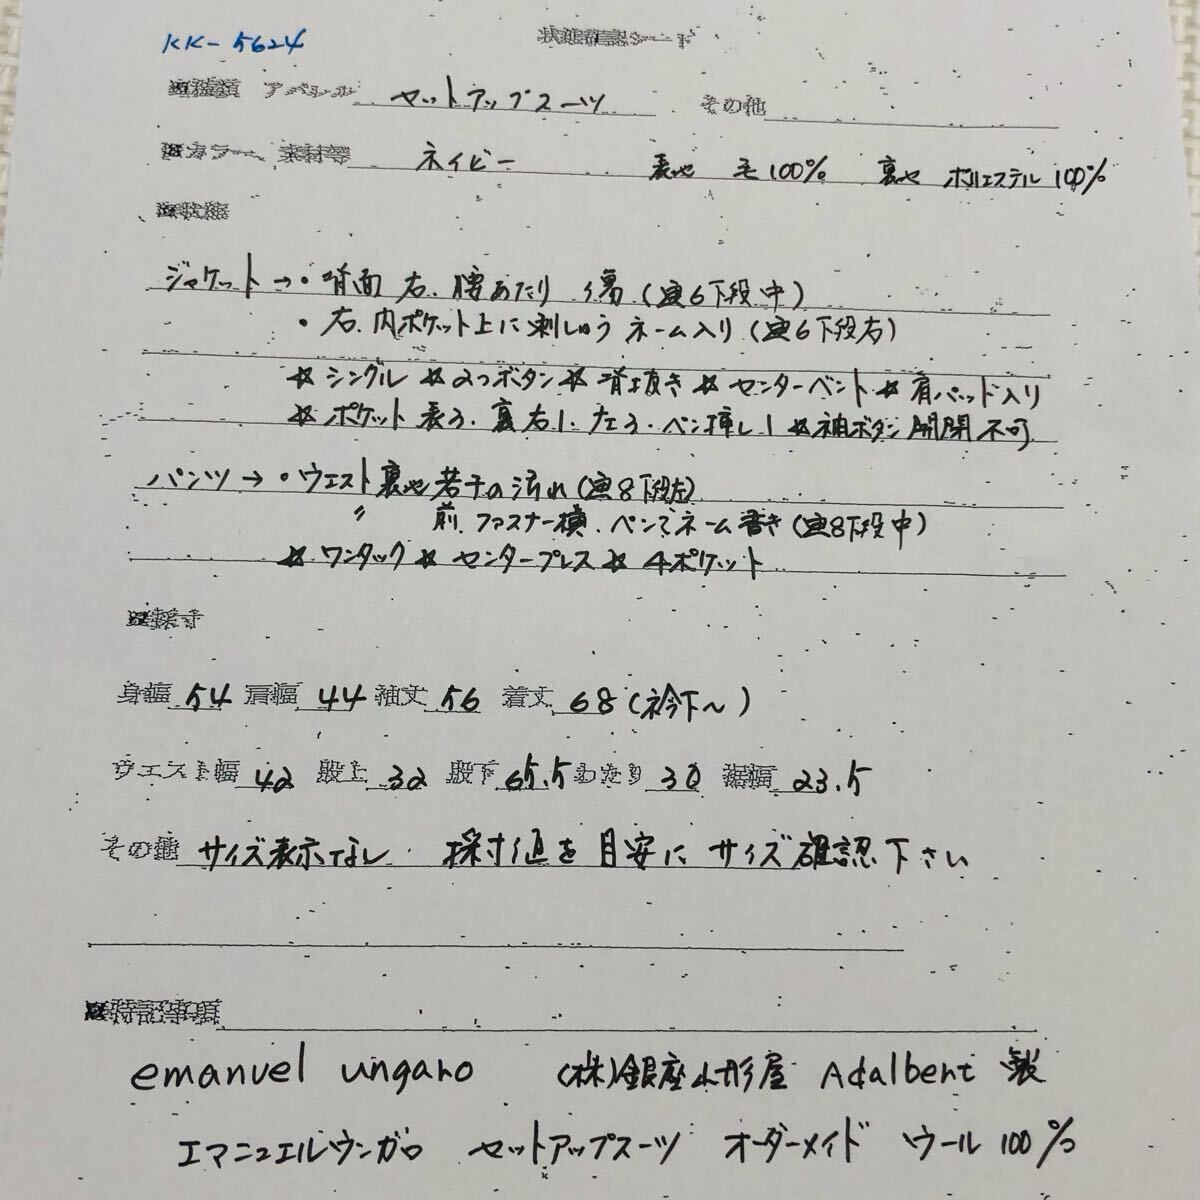 KK-5624
状態確認シート
※種類 アパレル セットアップスーツ その他
※カラー、素材等 ネイビー 表地 毛100% 裏地 ポリエステル100%
※状態
ジャケット→・背面 右、腰あたり 傷(画6下段中)
・右、内ポケット上に刺しゅう ネーム入り(画6下段右)
☆シングル ☆2つボタン ☆背抜き ☆センターベント ☆肩パッド入り
☆ポケット 表3、裏右1、左3、ペン挿し1 ☆袖ボタン 開閉不可
パンツ→・ウエスト裏地若干の汚れ(画8下段左)
〃 前、ファスナー横、ペンでネーム書き(画8下段中)
☆ワンタック ☆センタープレス ☆4ポケット
※採寸
身幅 54 肩幅 44 袖丈 56 着丈 68(衿下~)
ウエスト幅 42 股上 32 股下 65.5 わたり 30 裾幅 23.5
その他 サイズ表示なし 採寸値を目安にサイズ確認下さい
※特記事項
emanuel ungaro (株)銀座山形屋 Adalbert 製
エマニュエルウンガロ セットアップスーツ オーダーメイド ウール100%